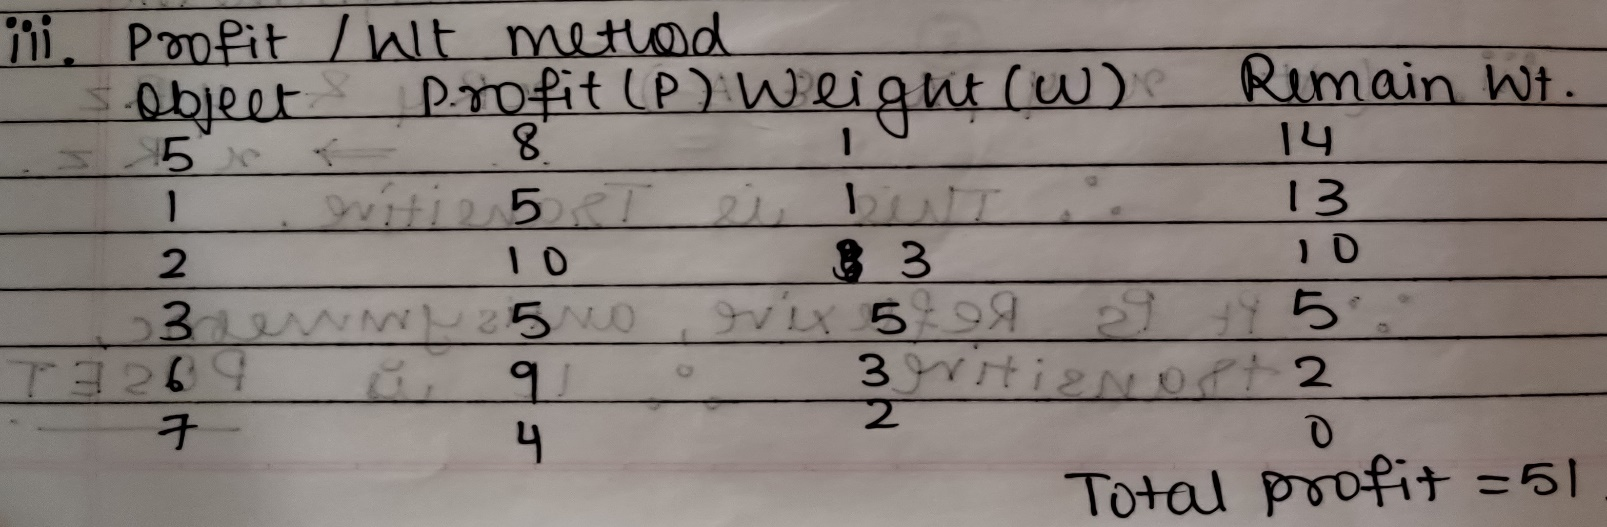 iii. Profit / Wt method
Object Profit (P) Weight (W) Remain Wt.
5 8 1 14
1 5 1 13
2 10 3 10
3 5 5 5
6 9 3 2
7 4 2 0
Total profit = 51